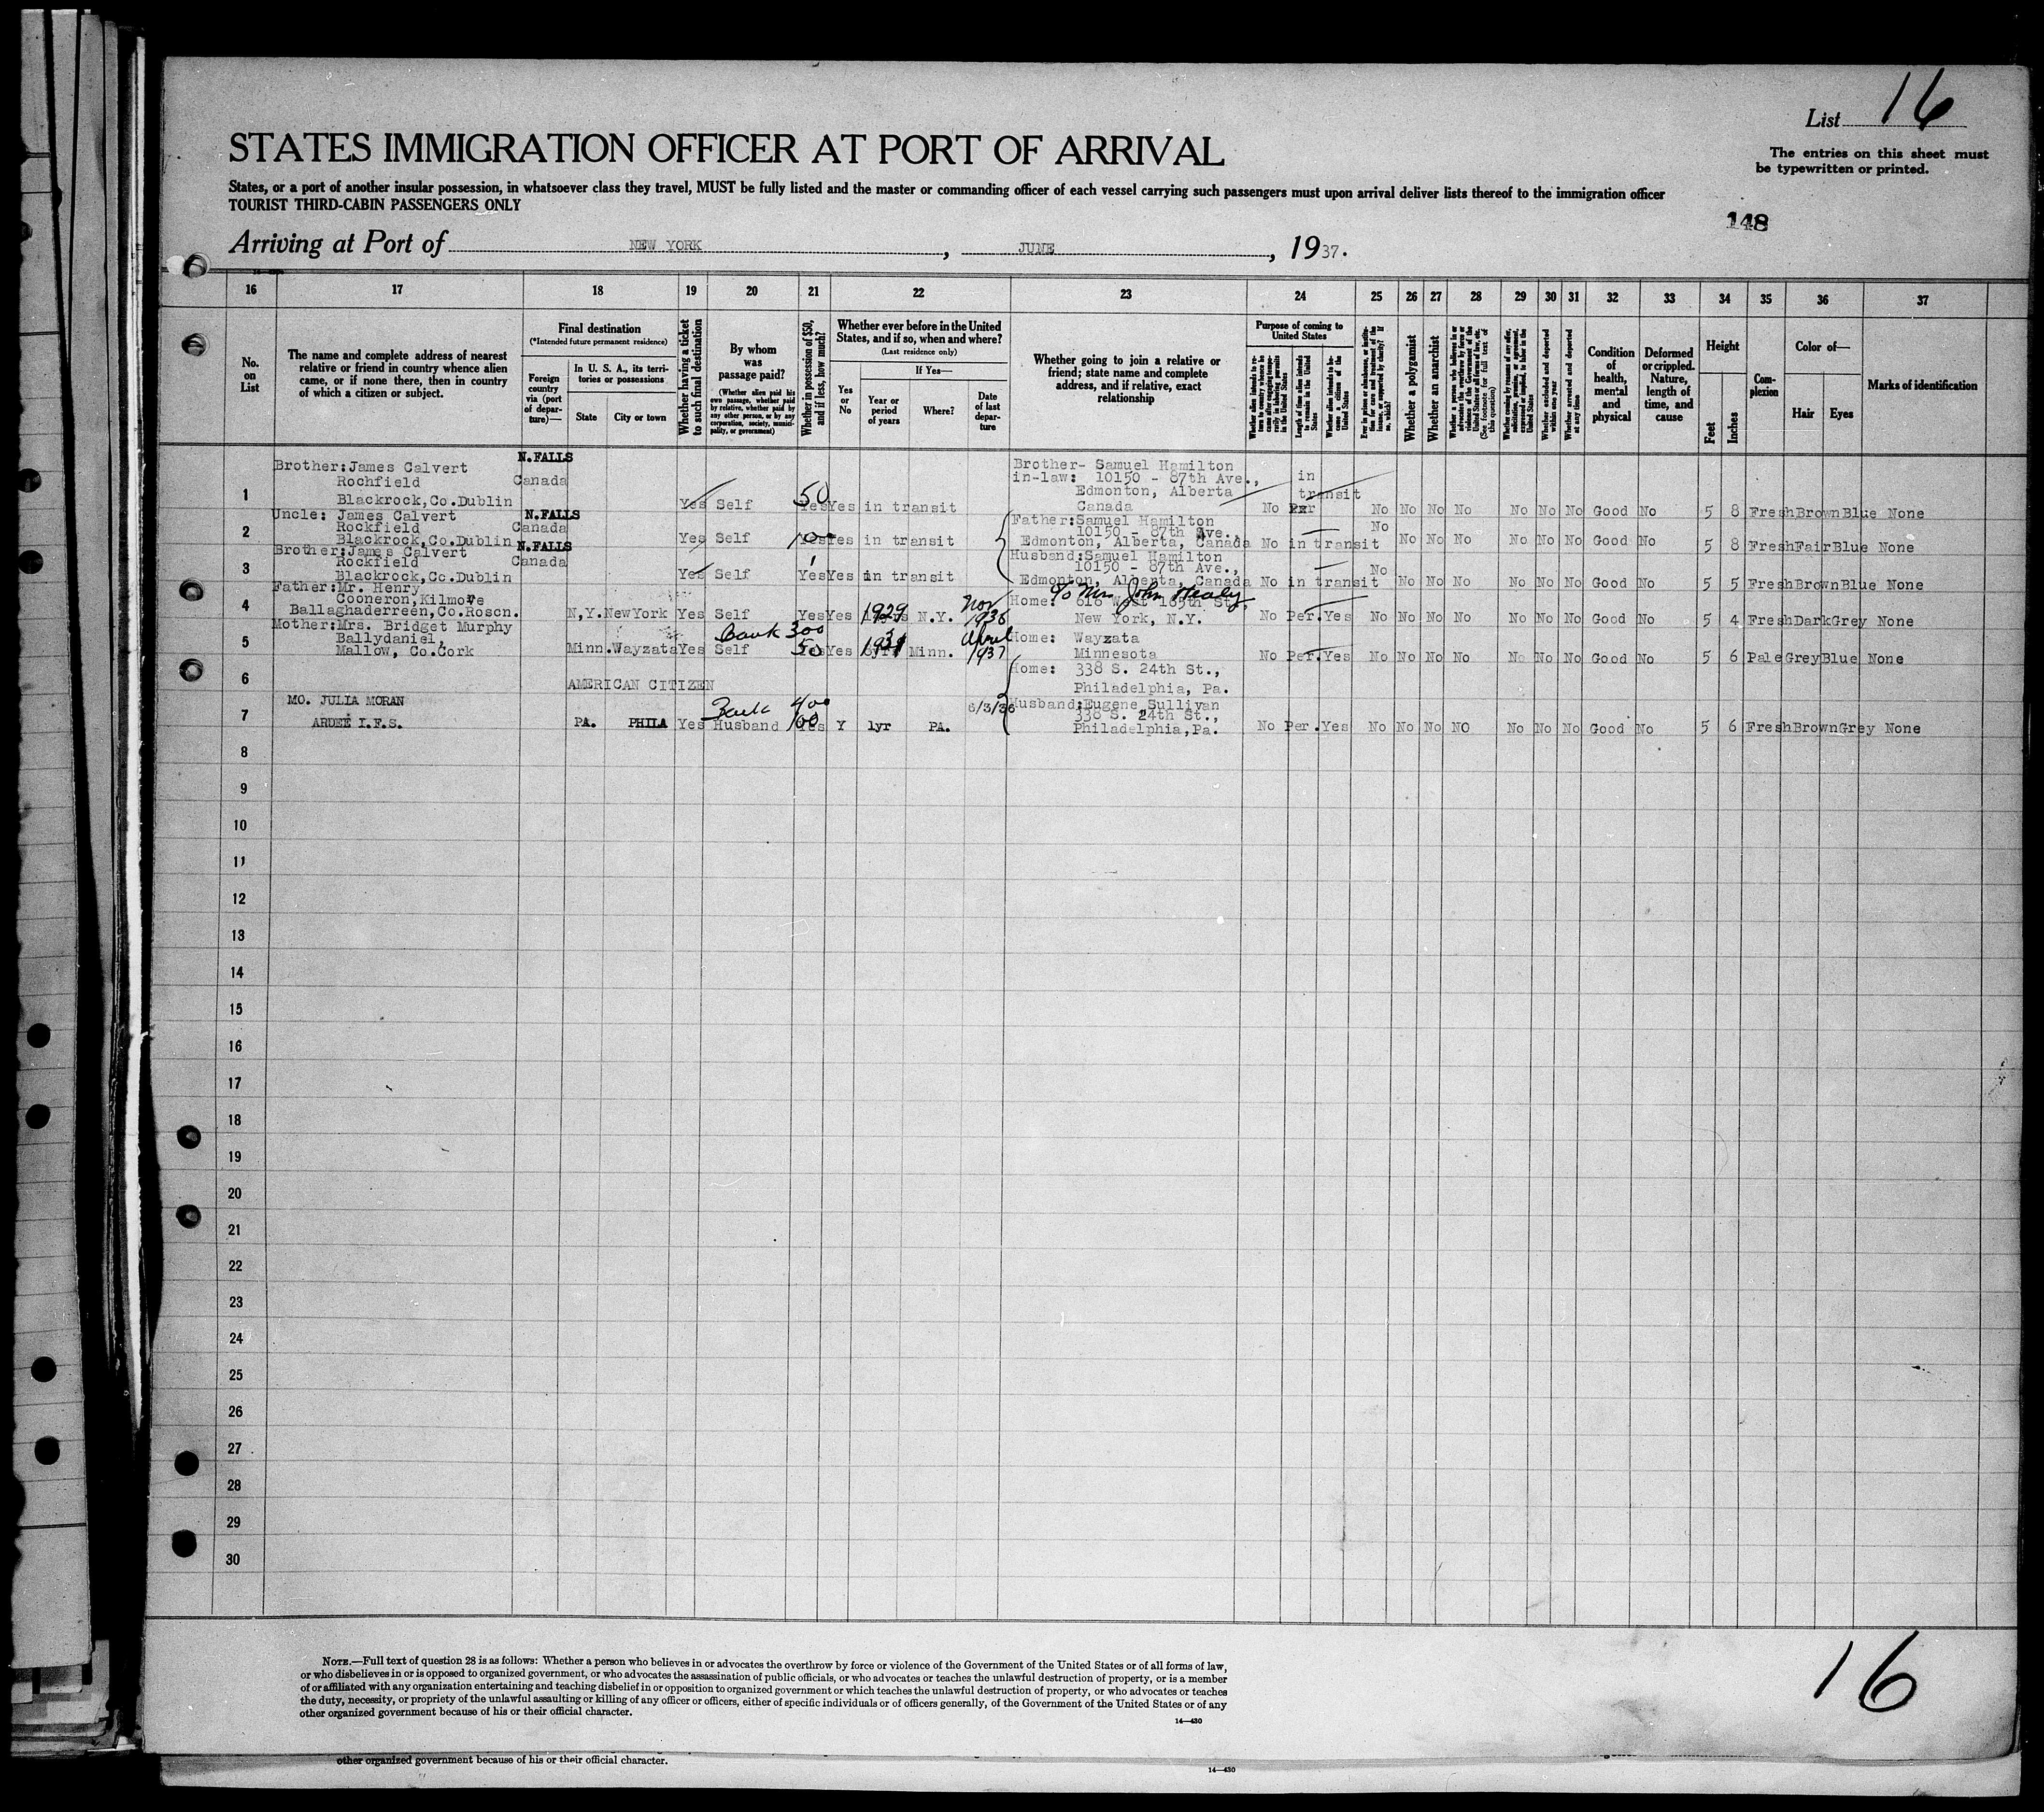 List 16
STATES IMMIGRATION OFFICER AT PORT OF ARRIVAL
The entries on this sheet must
be typewritten or printed.
States, or a port of another insular possession, in whatsoever class they travel, MUST be fully listed and the master or commanding officer of each vessel carrying such passengers must upon arrival deliver lists thereof to the immigration officer
TOURIST THIRD-CABIN PASSENGERS ONLY
148
Arriving at Port of NEW YORK, JUNE, 1937.
16 17 18 19 20 21 22 23 24 25 26 27 28 29 30 31 32 33 34 35 36 37
No.
on
List
The name and complete address of nearest
relative or friend in country whence alien
came, or if none there, then in country
of which a citizen or subject.
Final destination
(*Intended future permanent residence)
Foreign
country
via (port
of depar-
ture)—
In U. S. A., its terri-
tories or possessions
State City or town
Whether having a ticket
to such final destination
By whom
was
passage paid?
(Whether alien paid his
own passage, whether paid
by relative, whether paid by
any other person, or by any
corporation, society, munici-
pality, or government)
Whether in possession of $50,
and if less, how much?
Whether ever before in the United
States, and if so, when and where?
(Last residence only)
Yes
or
No
If Yes—
Year or
period
of years
Where?
Date
of last
depar-
ture
Whether going to join a relative or
friend; state name and complete
address, and if relative, exact
relationship
Purpose of coming to
United States
Whether alien intends to re-
turn to country whence he
came after engaging tempo-
rarily in laboring pursuits
in the United States
Length of time alien intends
to remain in the United
States
Whether alien intends to be-
come a citizen of the
United States
Whether a polygamist
Whether an anarchist
(See footnote for full text of
this question)
Whether arrested and deported
within one year
Whether arrested and deported
at any time
Condition
of
health,
mental
and
physical
Deformed
or crippled.
Nature,
length of
time, and
cause
Height
Feet Inches
Com-
plexion
Color of—
Hair Eyes
Marks of identification
1 Brother: James Calvert
Rochfield
Blackrock, Co. Dublin
N.FALLS
Canada
Yes Self 50 Yes Yes in transit
Brother- Samuel Hamilton
in-law: 10150 - 87th Ave.,
Edmonton, Alberta
Canada
in
transit
No No No No No No No No Good No 5 8 Fresh Brown Blue None
2 Uncle: James Calvert
Rockfield
Blackrock, Co. Dublin
N.FALLS
Canada
Yes Self 100 Yes Yes in transit
Father: Samuel Hamilton
10150 - 87th Ave.,
Edmonton, Alberta, Canada
No in transit No No No No No No No Good No 5 8 Fresh Fair Blue None
3 Brother: James Calvert
Rockfield
Blackrock, Co. Dublin
N.FALLS
Canada
Yes Self Yes Yes in transit
Husband: Samuel Hamilton
10150 - 87th Ave.,
Edmonton, Alberta, Canada
No in transit No No No No No No No Good No 5 5 Fresh Brown Blue None
4 Father: Mr. Henry
Cooneron, Kilmore
Ballaghaderreen, Co. Roscn.
N.Y. New York Yes Self Yes Yes 1929 N.Y. Nov 1936
To Mr. John Healy
Home: 616 West 165th St.,
New York, N.Y.
No Per. Yes No No No No No No No Good No 5 4 Fresh Dark Grey None
5 Mother: Mrs. Bridget Murphy
Ballydaniel,
Mallow, Co. Cork
Minn. Wayzata Yes bank 300
Self 50 Yes Yes Minn. April 1937
Home: Wayzata
Minnesota
No Per. Yes No No No No No No No Good No 5 6 Pale Grey Blue None
6 AMERICAN CITIZEN
Home: 338 S. 24th St.,
Philadelphia, Pa.
7 MO. JULIA MORAN
ARDEE I.F.S.
PA. PHILA Yes Bank 400
Husband 100 Yes Y 1yr PA. 6/3/36
Husband: Eugene Sullivan
338 S. 24th St.,
Philadelphia, Pa.
No Per. Yes No No No NO No No No Good No 5 6 Fresh Brown Grey None
8
9
10
11
12
13
14
15
16
17
18
19
20
21
22
23
24
25
26
27
28
29
30
NOTE.—Full text of question 28 is as follows: Whether a person who believes in or advocates the overthrow by force or violence of the Government of the United States or of all forms of law,
or who disbelieves in or is opposed to organized government, or who advocates the assassination of public officials, or who advocates or teaches the unlawful destruction of property, or is a member
of or affiliated with any organization entertaining and teaching disbelief in or opposition to organized government or which teaches the unlawful destruction of property, or who advocates or teaches
the duty, necessity, or propriety of the unlawful assaulting or killing of any officer or officers, either of specific individuals or of officers generally, of the Government of the United States or of any
other organized government because of his or their official character.
14—430
16
other organized government because of his or their official character.
14—430